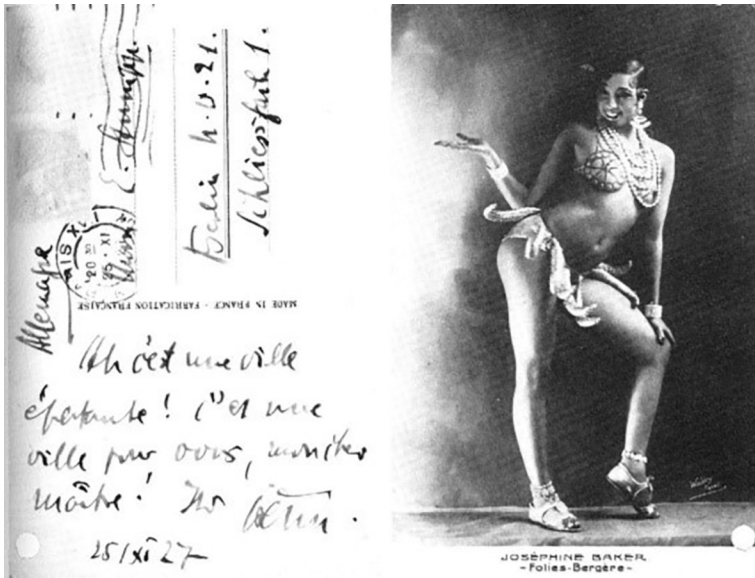 Allemagne
Berlin N.W. 21.
Schliessfach 1.
MADE IN FRANCE - FABRICATION FRANÇAISE
Ah c'est une ville
épatante! C'est une
ville pour vous, mon cher
maître! Ihr
25/XI 27
JOSÉPHINE BAKER
-Folies-Bergère-